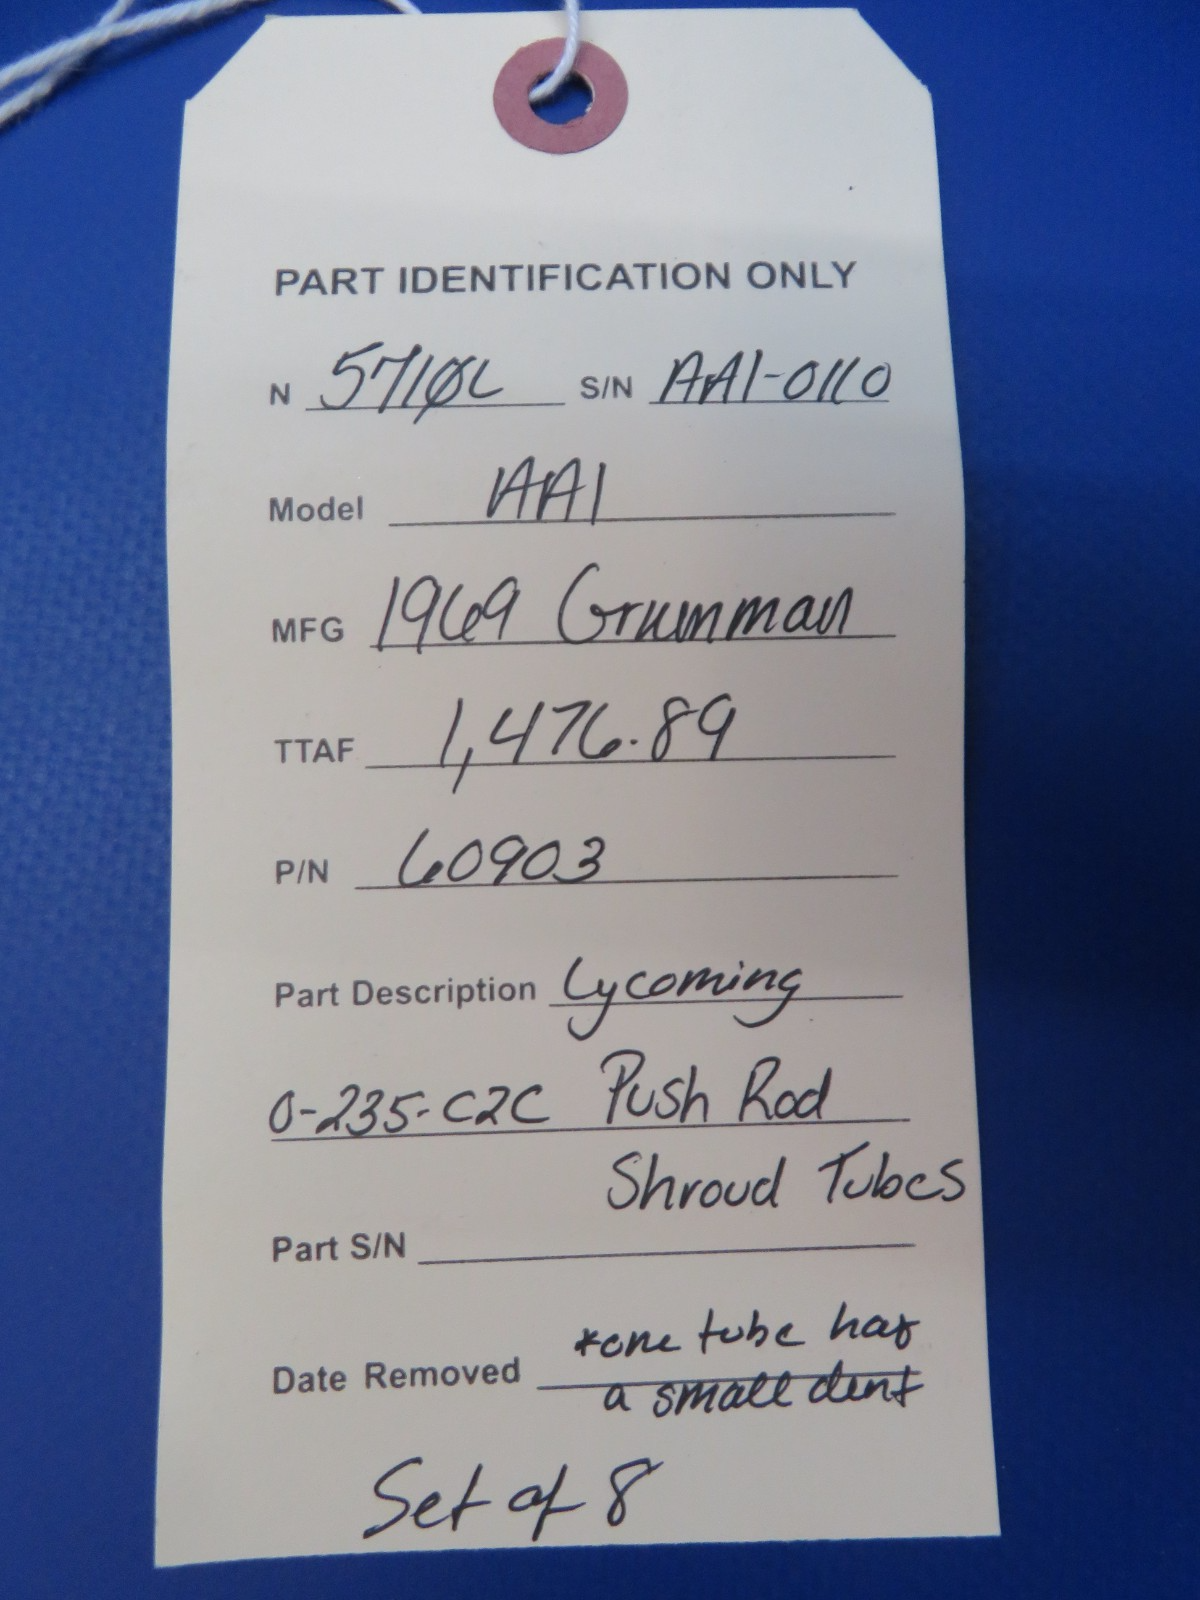 PART IDENTIFICATION ONLY
N 5710L S/N AA1-0110
Model AA1
MFG 1969 Grumman
TTAF 1,476.89
P/N 60903
Part Description Lycoming
O-235-C2C Push Rod
Shroud Tubes
Part S/N
*one tube has
Date Removed a small dent
Set of 8